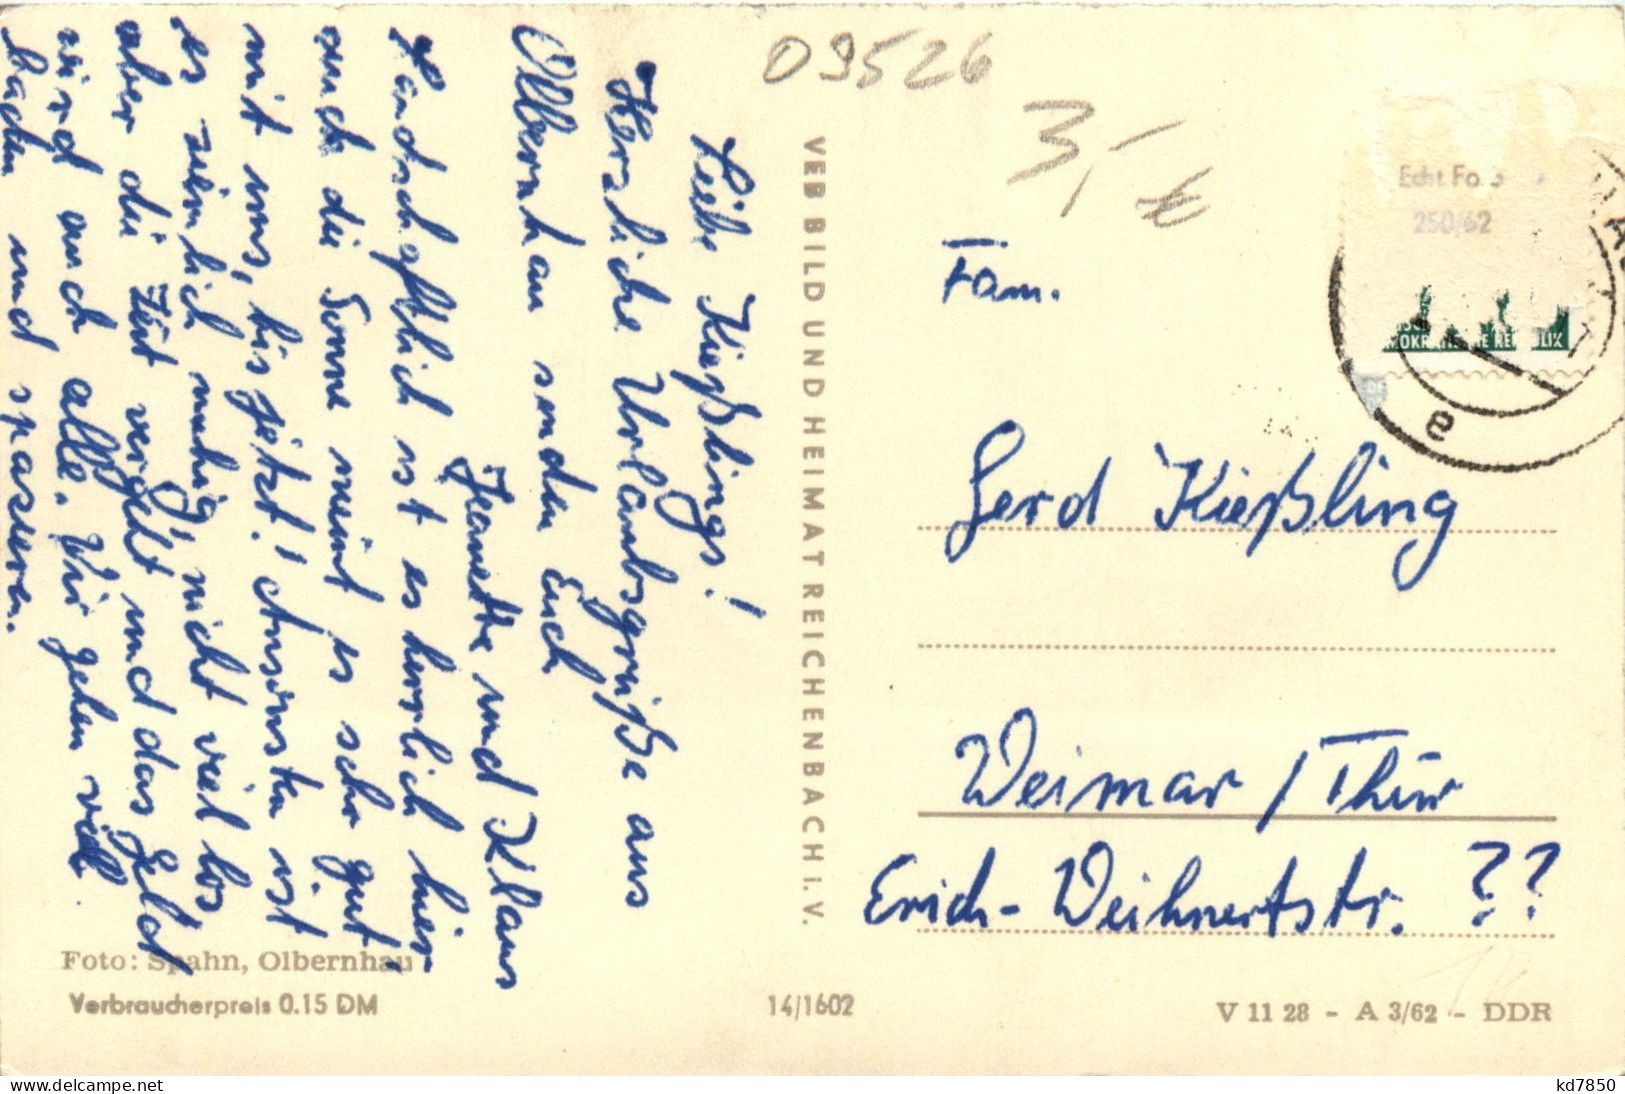 09526
3,- 
Liebe Kießlings!
Herzliche Urlaubsgrüße aus
Olbernhau senden Euch
Jeanette und Klaus
Landschaftlich ist es herrlich hier
auch die Sonne meint es sehr gut
mit uns, bis jetzt! Ansonsten ist
es ziemlich ruhig, nicht viel los
aber die Zeit vergeht und das Geld
wird auch alle. Wir gehen viel
baden und spazieren.
VEB BILD UND HEIMAT REICHENBACH I. V.
Echt Foto
250/62
Fam.
Gerd Kießling
Weimar / Thür
Erich-Weihnertstr. ??
Foto: Spahn, Olbernhau
Verbraucherpreis 0.15 DM
14/1602
V 11 28 - A 3/62 - DDR
www.delcampe.net
kd7850